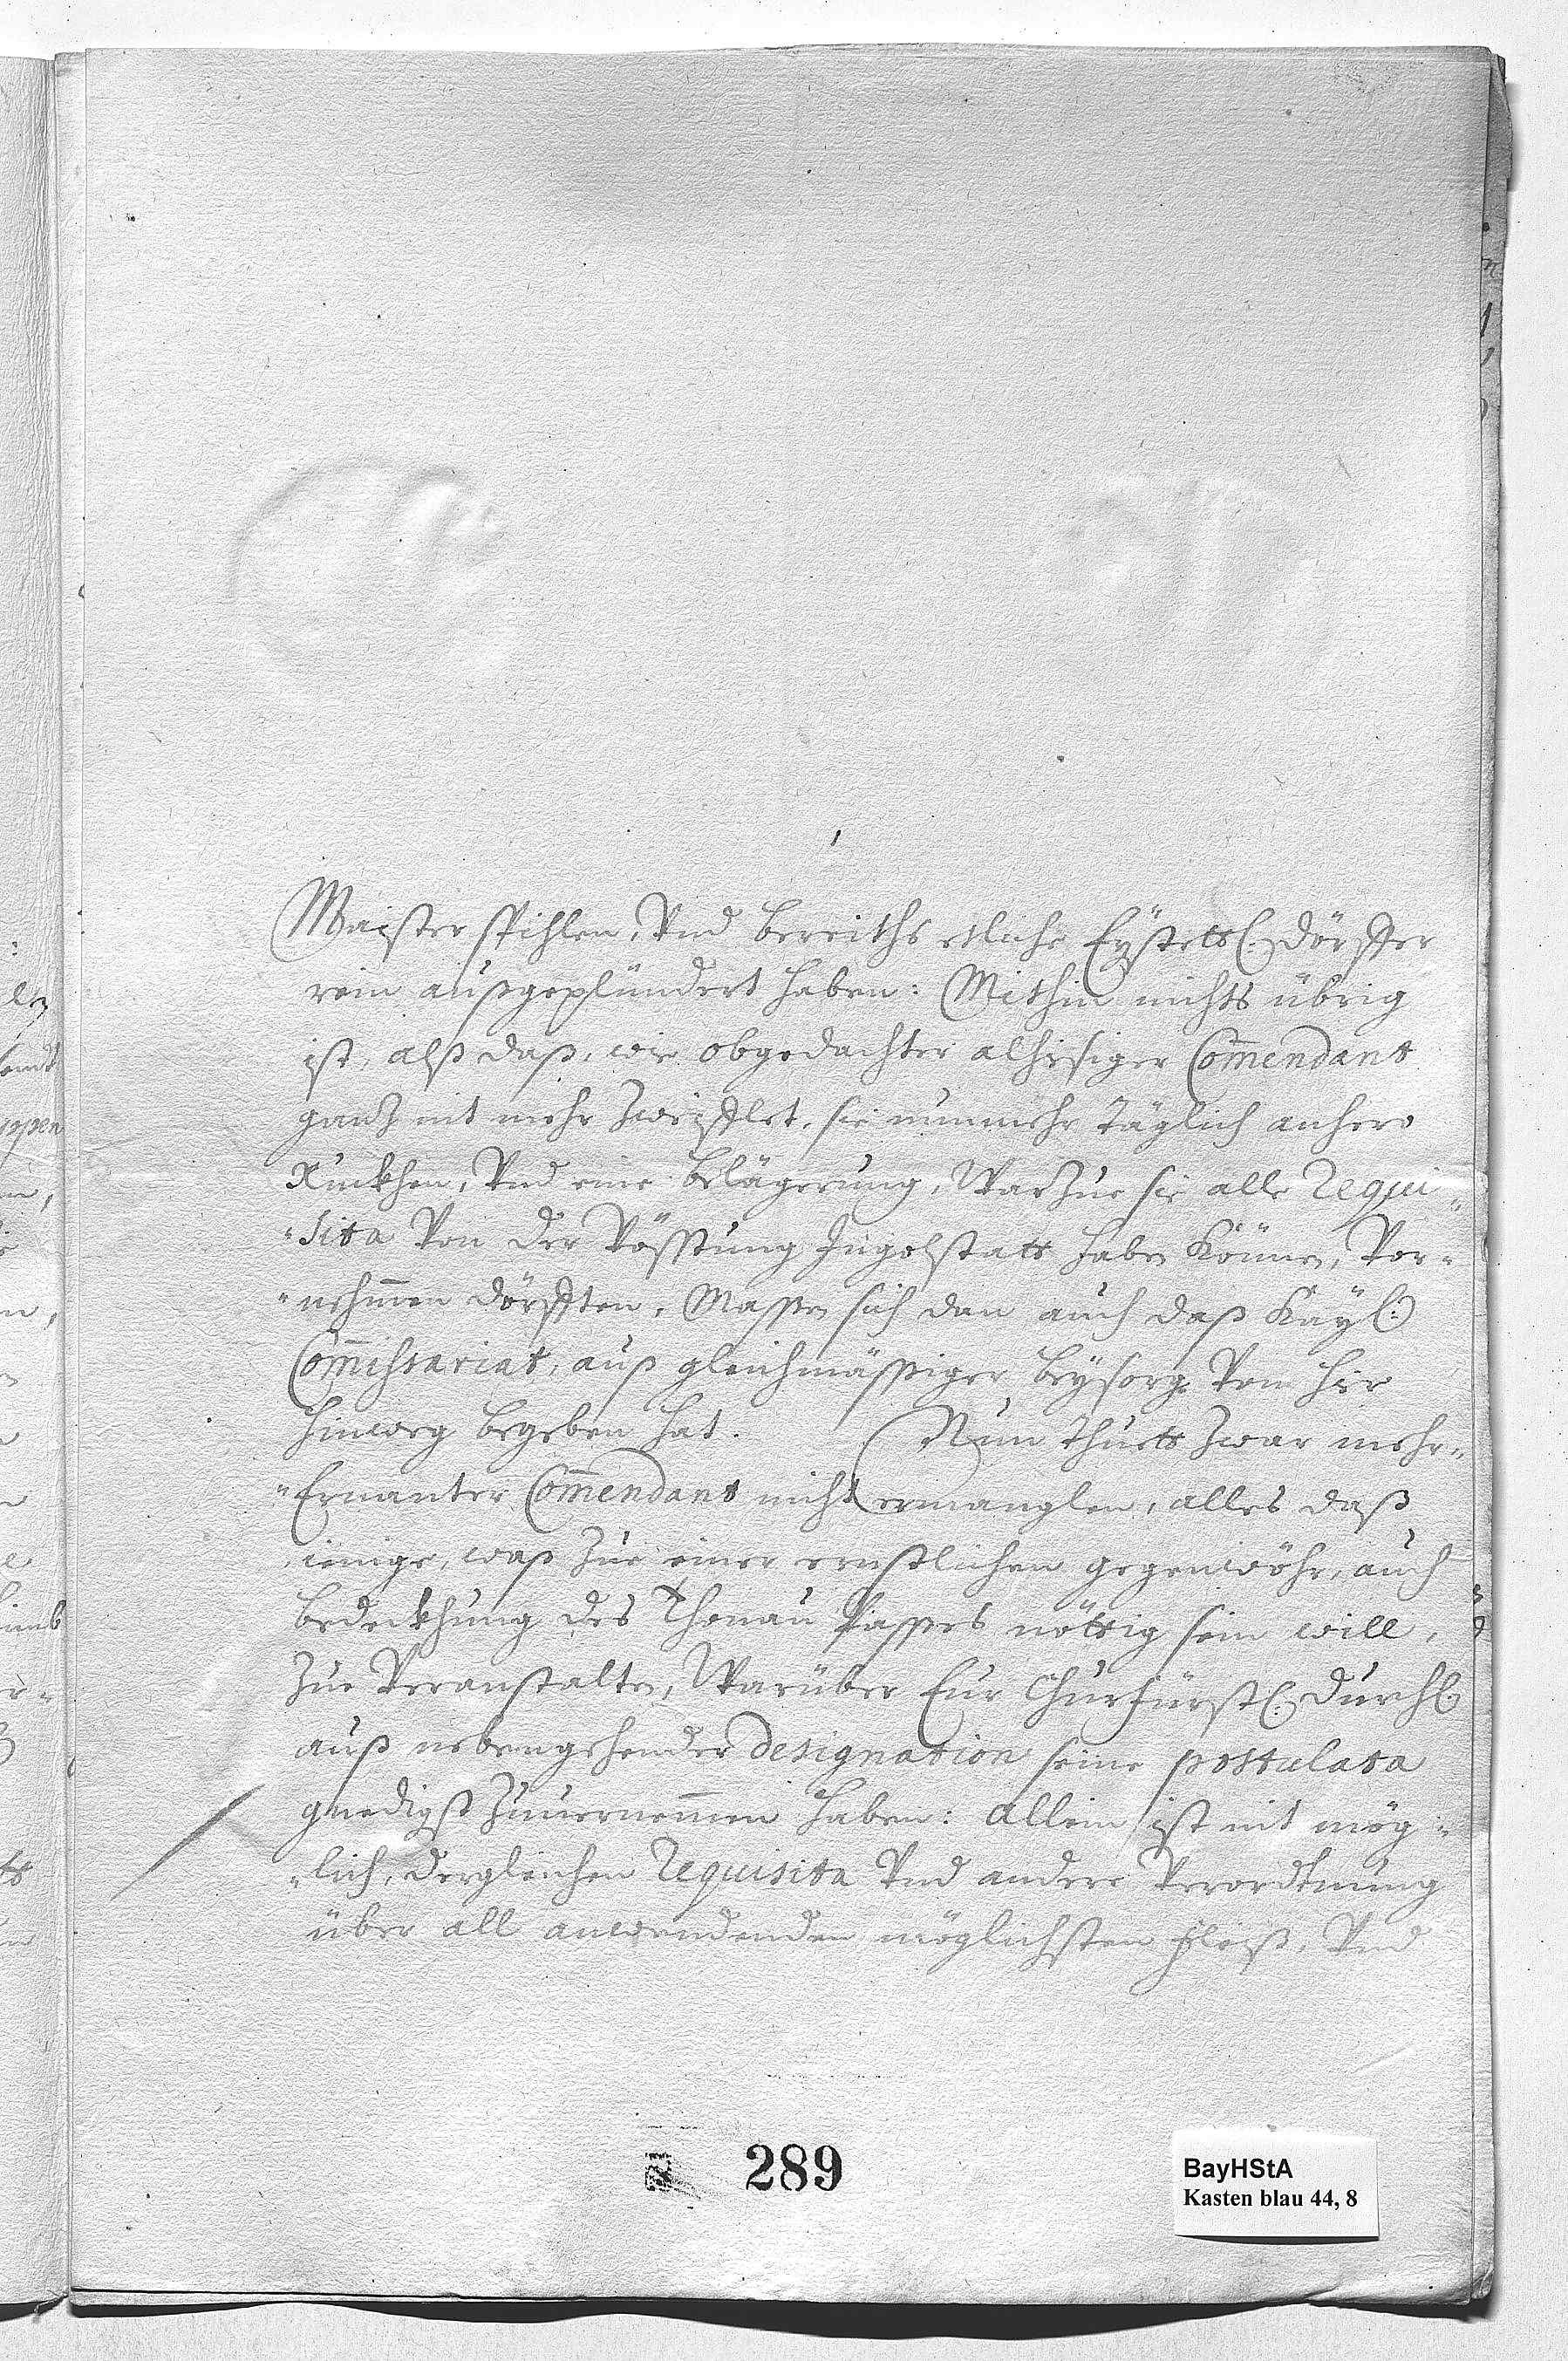 Maister spihlen, Vnd bereiths etliche Eystett(: dörffer
rein außgeplündert haben: Mithin nichts übrig
ist, alß daß, wie obgedachter alhisiger Com̄endant
ganz nit mehr zweifflet, sie nunmehr täglich anhero
Ruckhen, Vnd eine belägerung, Warzue sie alle requi-
-sita Von der Vösstung Ingolstatt haben können, Vor-
-nehmen dörfften, Massen sich dan auch daß Kay(:
Com̄issariat, auß gleichmässiger beysorg Von hier
hinweg begeben hat. Nun thuett zwar mehr-
-Ernanter Com̄endant nicht ermanglen, alles daß
ienige, waß zue einer ernstlichen gegenwöhr, auch
bedeckhung des Thonau Passes nöttig sein will,
zue Veranstalten, Warüber Eur Churfürstl: Durchl:
auß nebengehender designation seine postulata
gnedigst zuuernemmen haben: allein ist nit mög-
-lich, dergleichen requisita Vnd andere Verordtnung
über all anwendenden möglichsten fleiß, Vnd
289
BayHStA
Kasten blau 44, 8